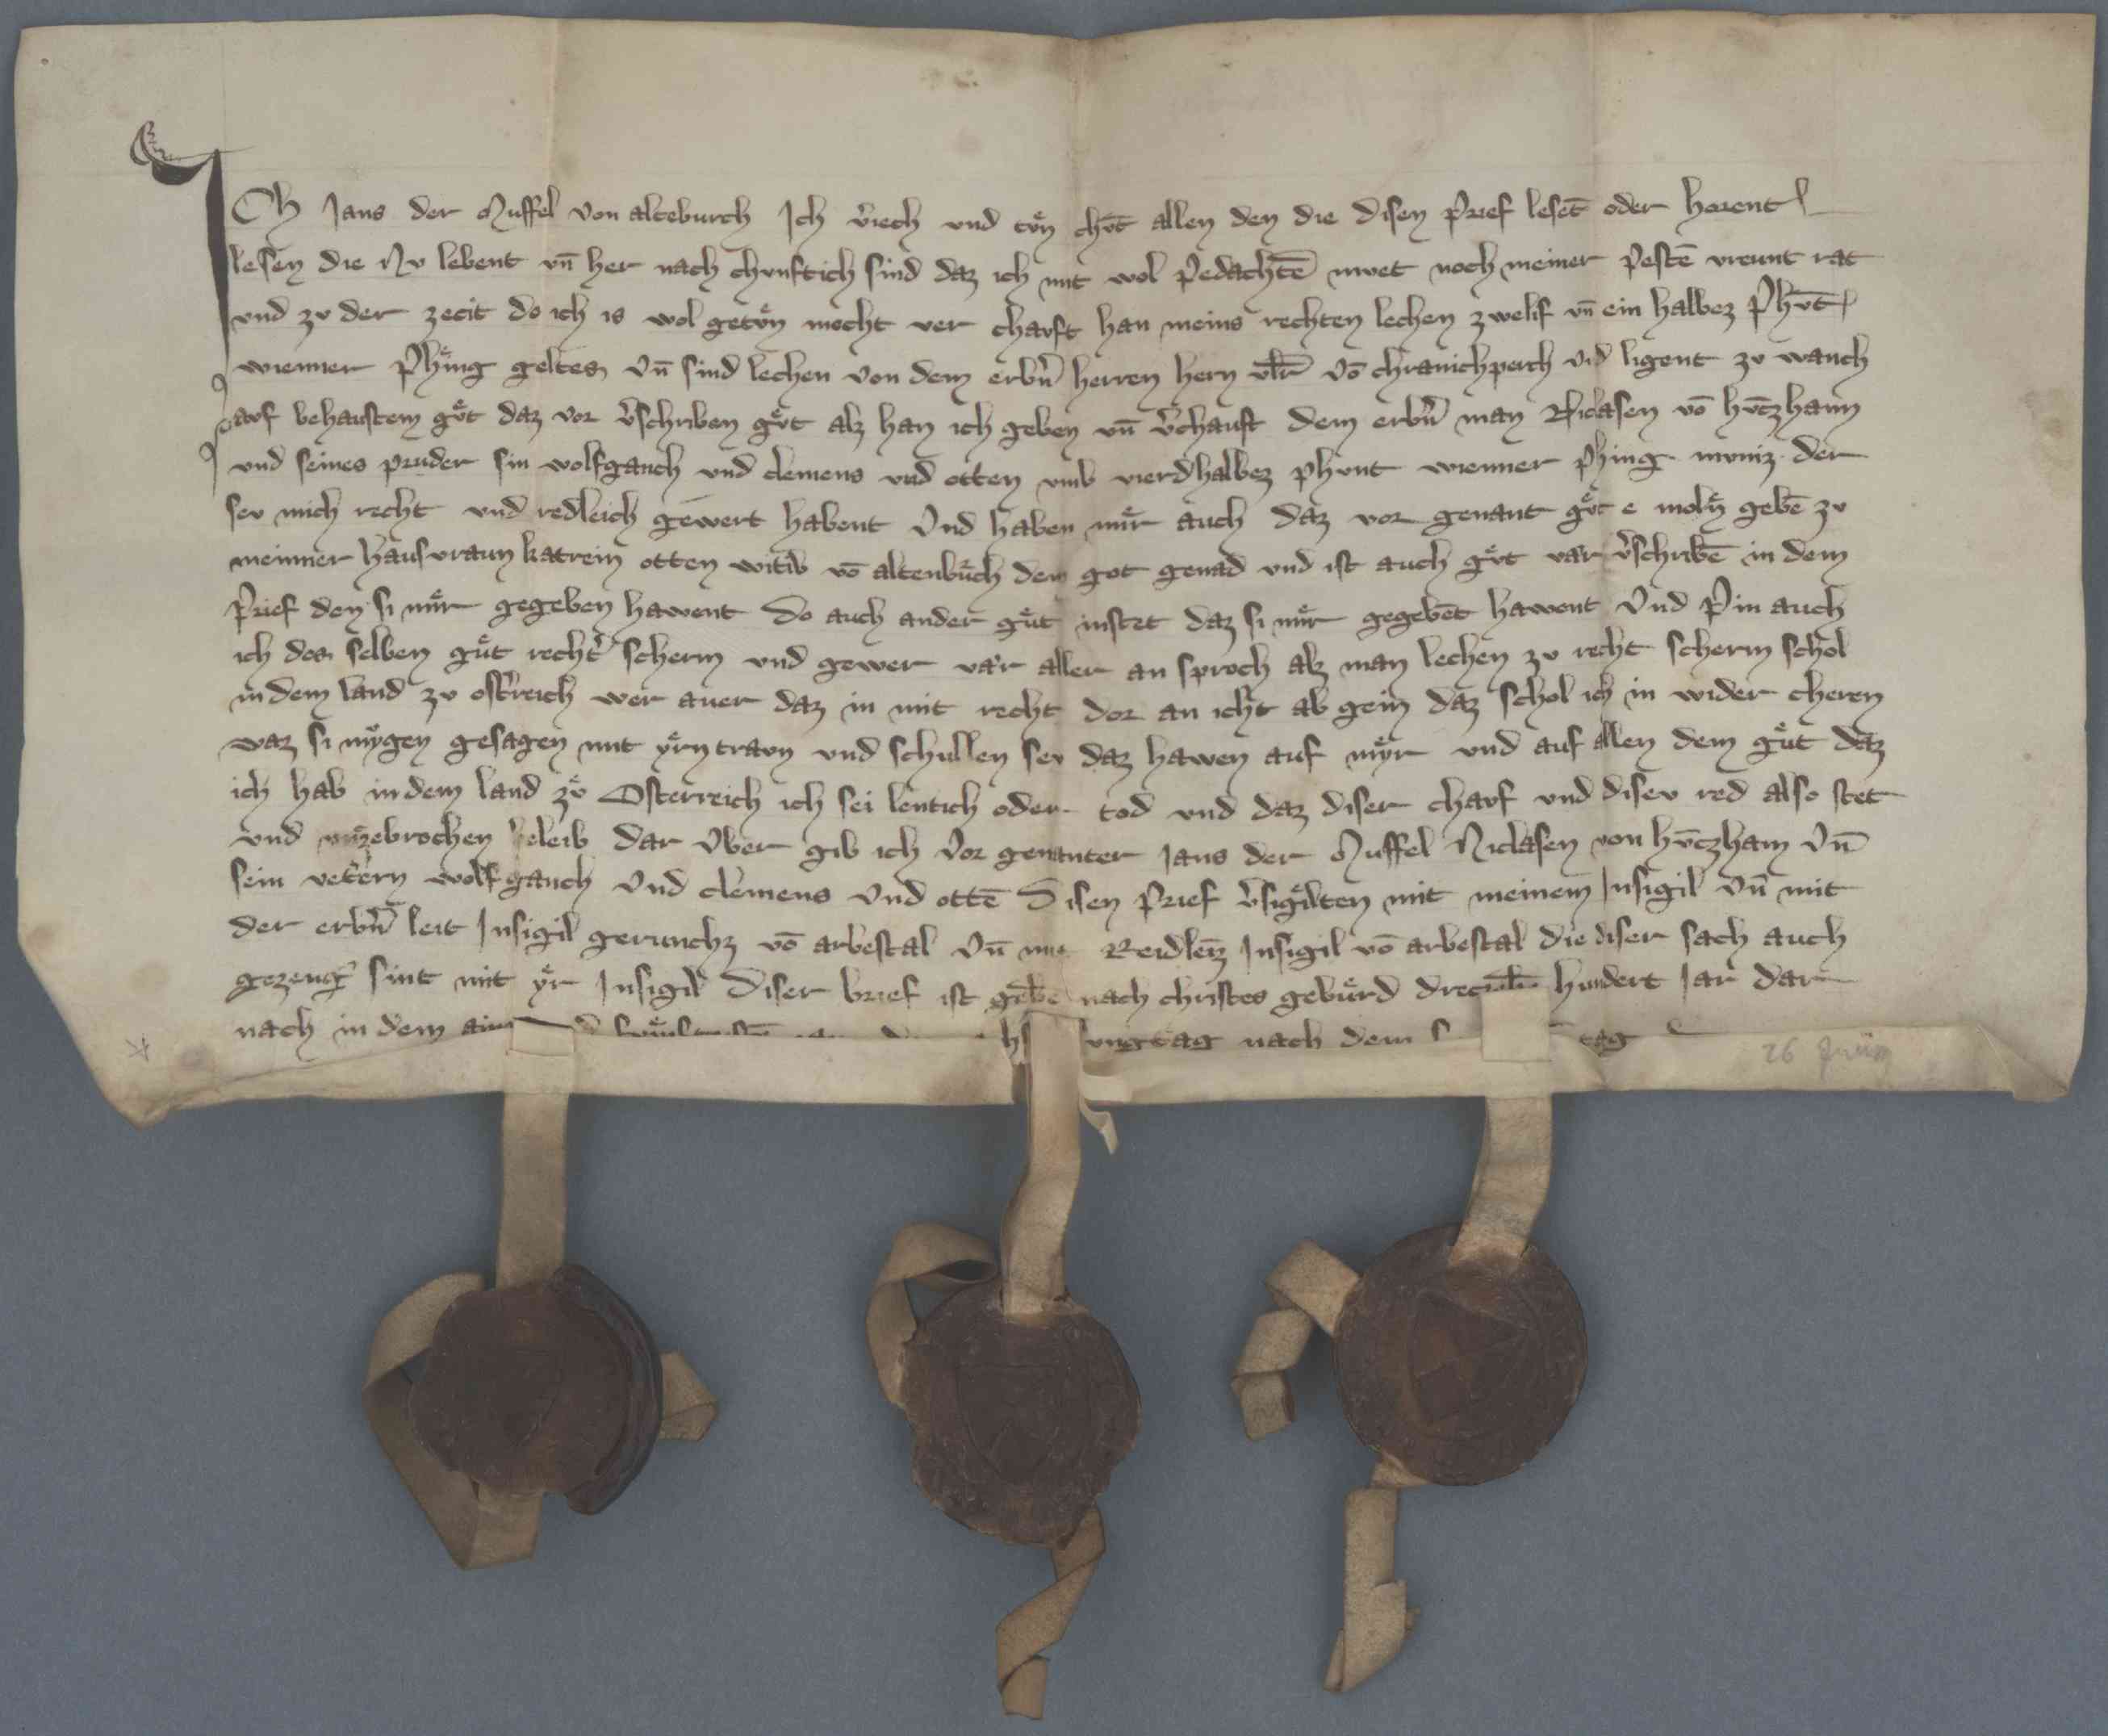 ICh Jans der Muffel von alteburch Ich v̄iech vnd tvͦn chvͦt allen den die disen prief lesēt oder horent
lesen die Nv lebent vn̄ her nach chvnftich sind daz ich mit wol pedachtē mvet noch meiner pestē vreunt rat
vnd zv der zeeit do ich is wol getvͦn mocht ver chavft han meins rechten lechen zwelif vn̄ ein halbez phvt̄
wienner phӟing geltes vn̄ sind lechen von dem erbn̄ herren hern vlr̄ vō chranichperch vnd ligent zv wanch
avf behaustem gvͤt daz vor v̄schriben gvͤt alz han ich geben vn̄ v̄chauft dem erbn̄ man Niclasen vō hvt̄zhaim
vnd seines pruder sin wolfganch vnd clemens vnd otten vmb vierdhalbez phvnt wienner phing mvniz der
sev mich recht vnd redleich gewert habent Vnd haben mir auch daz vor genant gvͤt e moln gebē zv
meinner hausvraun katrein otten witib vō altenbuͤrch dem got genad vnd ist auch gvͤt var v̄schribē in dem
prief den si muͤr gegeben hawent do auch ander guͤt instet daz si muͤr gegebēt hawent Vnd pin auch
ich des selben guͤt recht̄ scherm vnd gewer var aller an sproch alz man lechen zv recht scherm schol
in dem land zv ost̄reich wer auer daz in mit recht dor an icht ab gein daz schol ich in wider cheren
waz si mygen gesagen mit yrn travn vnd schullen sev daz hawen auf myr vnd auf allen dem guͤt daz
ich hab in dem land zvͦ Osterreich ich sei lentich oder tod vnd daz diser chavf vnd disev red also stet
vnd vnzebrochen beleib dar vber gib ich vor genanter Jans der Muffel Niclasen von hvt̄zham vn̄
sein vetern wolfganch vnd clemens vnd ottē Disen prief v̄sigilten mit meinem Insigil vn̄ mit
der erbn̄ leit Insigil gerunchz vō arbestal vn̄ mit Reidleinz Insigil vō arbestal die diser sach auch
gezeug sint mit yr Insigil Diser brief ist gebē nach christes gebuͤrd hundert Jar dar
nach in dem nach dem tag
26 Juni